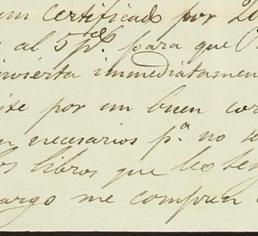 un certificado por 20
al 5 p% para que
invierta immediatamen
por un buen cor
necesarios pª no se
os libros que les ten
argo me compren